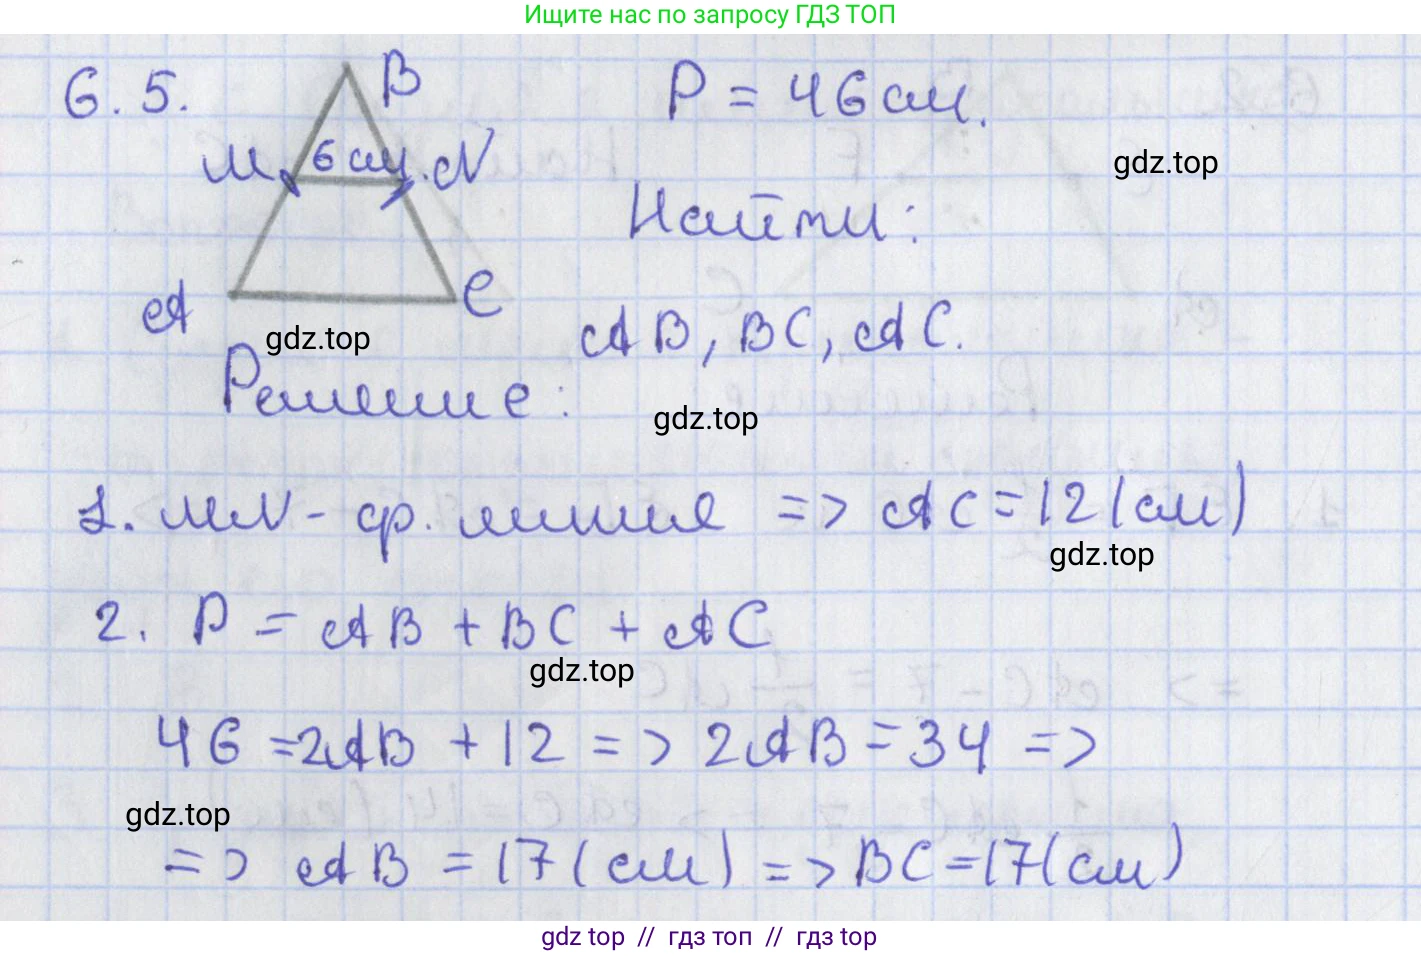 Ищите нас по запросу ГДЗ ТОП
6.5.
B
P = 46 см.
M
6 см.
N
gdz.top
Найти:
A
C
gdz.top
AB, BC, AC.
Решение:
gdz.top
1. MN - ср. линия => AC = 12 (см)
gdz.top
2. P = AB + BC + AC
gdz.top
46 = 2AB + 12 => 2AB = 34 =>
gdz.top
=> AB = 17 (см) => BC = 17 (см)
gdz top // гдз топ // гдз top